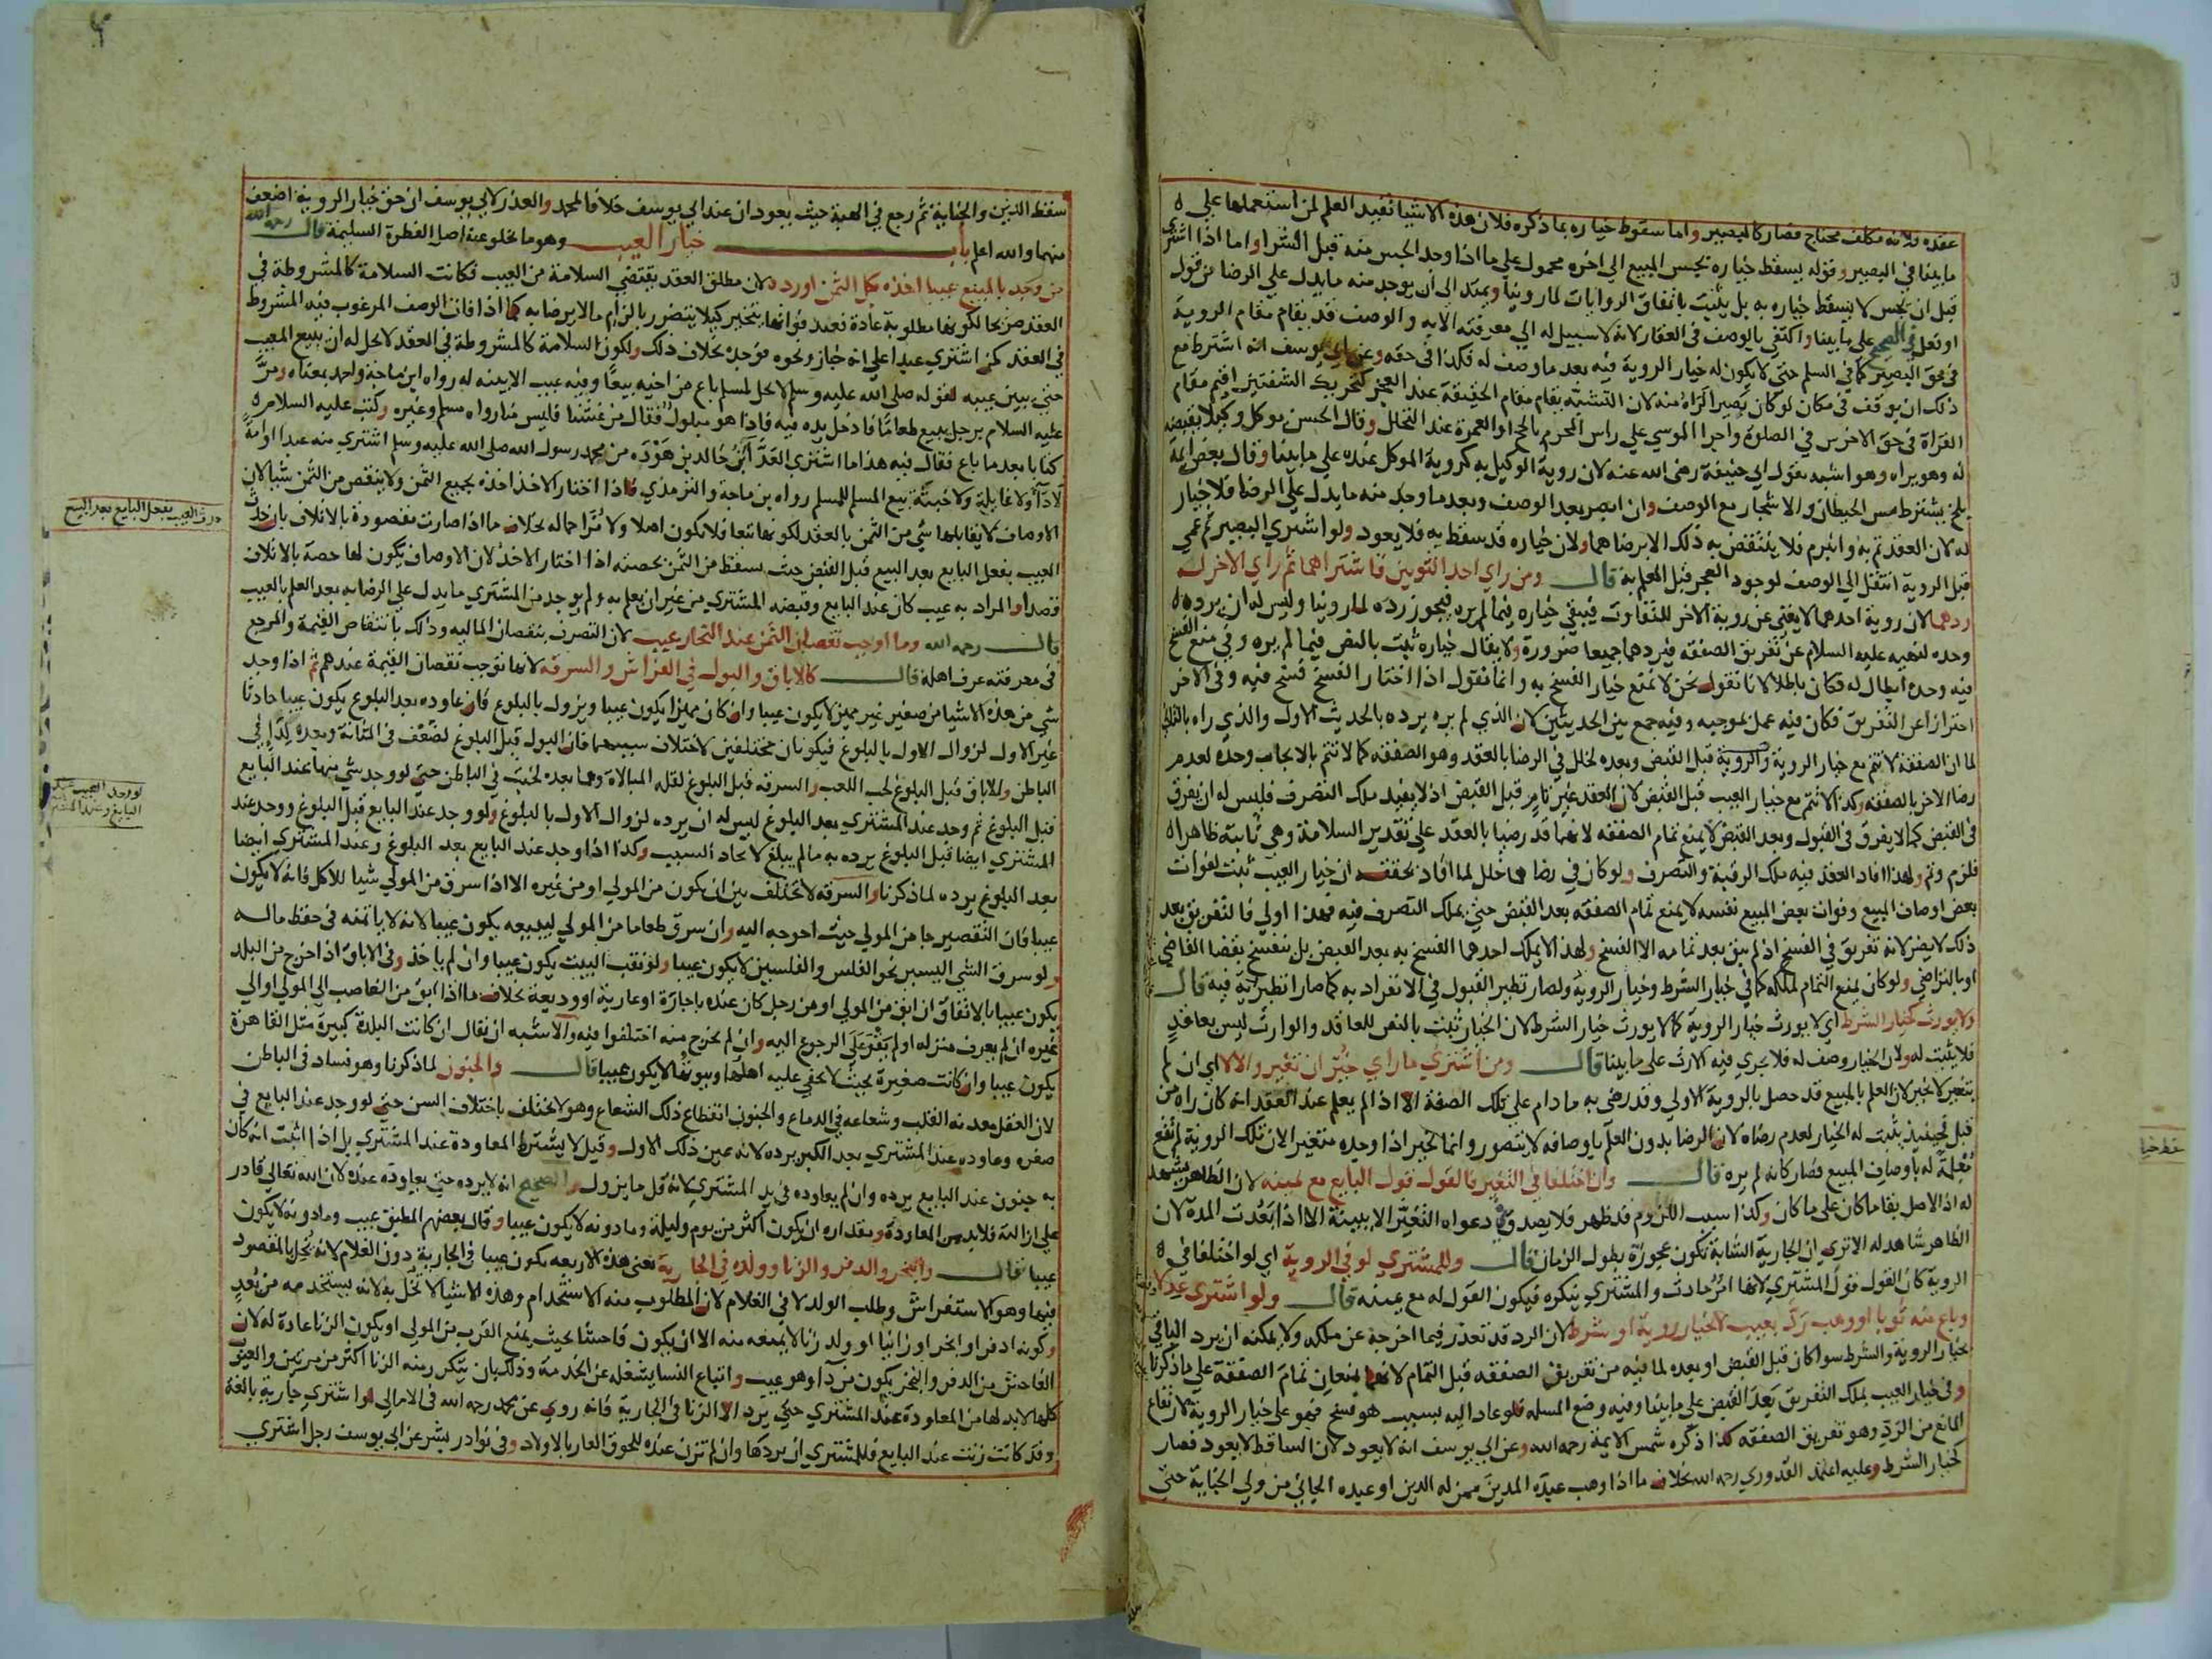 عقده ولانه مكلف محتاج فصار كالبصير واما سقوط خياره بما ذكره فلان هذه الاشيا تفيد العلم لمن استعملها على
ما بينا في البصير وقوله يسقط خياره بجس المبيع الى اخره محمول على ما اذا وجد الجس منه قبل الشرا واما اذا اشترى
قبل ان يجس لا يسقط خياره به بل يثبت باتفاق الروايات لما روينا ويمتد الى ان يوجد منه ما يدل على الرضا من قول
او فعل في الصحيح على ما بينا واكتفى بالوصف في العقار لانه لا سبيل له الى معرفته الا به والوصف قد يقام مقام الروية
في حق البصير كما في السلم حتى لا يكون له خيار الروية فيه بعد ما وصف له فكذا في حقه وعن ابي يوسف انه اشترط مع
ذلك ان يوقف في مكان لو كان بصيرا لراه منه لان التشبه يقام مقام الحقيقة عند العجز كتحريك الشفتين اقيم مقام
القراة في حق الاخرس في الصلوة واجرا الموسي على راس المحرم بالحج او العمرة عند التحلل وقال الحسن يوكل وكيلا بقبضه
له وهو يراه وهو اشبه بقول ابي حنيفة رضى الله عنه لان روية الوكيل به كروية الموكل عنده على ما بينا وقال بعض ايمة
بلخ يشترط مس الحيطان والاشجار مع الوصف وان ابصر بعد الوصف وبعد ما وجد منه ما يدل على الرضا فلا خيار
له لان العقد تم به وانبرم فلا ينتقض به ذلك الا برضاهما ولان خياره قد سقط به فلا يعود ولو اشترى البصير ثم عمي
قبل الروية انتقل الى الوصف لوجود العجز قبل العلم به قال ومن راى احد الثوبين فاشتراهما ثم راى الاخر له
ردهما لان روية احدهما لا يغني عن روية الاخر للتفاوت فيبقى خياره فيما لم يره فيجوز رده لما روينا وليس له ان يرده
وحده لنهيه عليه السلام عن تفريق الصفقه فيردهما جميعا ضرورة ولا يقال خياره ثبت بالنص فيما لم يره وفي منع الفسخ
فيه وحده ابطال له فكان باطلا لانا نقول نحن لا نمنع خيار الفسخ به وانما نقول اذا اختار الفسخ فسخ فيه وفي الاخر
احترازا عن التفريق فكان فيه عمل بموجبه وفيه جمع بين الحديثين لان الذي لم يره يرده بالحديث الاول والذي راه بالثاني
لما ان الصفقة لا تتم مع خيار الروية قبل القبض وبعده لخلل في الرضا بالعقد وهو الصفقه كما لا تتم بالايجاب وحده لعدم
رضا الاخر بالصفقه وكذا لا تتم مع خيار العيب قبل القبض لان العقد غير تام قبل القبض اذ لا يفيد ملك التصرف فليس له ان يفرق
في القبض كما لا يفرق في القبول وبعد القبض لا يمنع تمام الصفقه لانهما قد رضيا بالعقد على تقدير السلامة وهي ثابتة ظاهرا
فلزم وتم ولهذا افاد العقد فيه ملك الرقبة والتصرف ولو كان في رضاهما خلل لما افاد تحققه ان خيار العيب ثبت لفوات
بعض اوصاف المبيع وفوات بعض المبيع نفسه لا يمنع تمام الصفقه بعد القبض حتى يملك التصرف فيه فهذا اولى فالتفريق بعد
ذلك لا يضر لانه تفريق في الفسخ اذ لم يبق بعد تمامه الا الفسخ ولهذا لا يملك احدهما الفسخ به بعد القبض بل ينفسخ بقضا القاضي
او بالتراضي ولو كان يمنع التمام لملكه كما في خيار الشرط وخيار الروية ولصار نظير القبول في الانفراد به كما صارا نظيريه فيه قال
ولا يورث كخيار الشرط اي لا يورث خيار الروية كما لا يورث خيار الشرط لان الخيار ثبت بالنص للعاقد والوارث ليس بعاقد
فلا يثبت له ولان الخيار وصف له فلا يجري فيه الارث على ما بينا قال ومن اشترى ما راى خير ان تغير والا لا اي ان لم
يتغير لا يخير لان العلم بالمبيع قد حصل بالروية الاولى وقد رضي به ما دام على تلك الصفة الا اذا لم يعلم عند العقد انه كان راه من
قبل فحينيذ يثبت له الخيار لعدم رضاه لان الرضا بدون العلم باوصافه لا يتصور وانما يخير اذا وجده متغيرا لان تلك الروية لم تقع
معلمة له باوصاف المبيع فصار كانه لم يره قال وان اختلفا في التغير فالقول قول البايع مع يمينه لان الظاهر يشهد
له اذ الاصل بقا ما كان على ما كان وكذا سبب اللزوم قد ظهر فلا يصدق دعواه التغير الا ببينة الا اذا بعدت المدة لان
الظاهر شاهد له الا ترى ان الجارية الشابة تكون عجوزة بطول الزمان قال وللمشتري لو في الروية اي لو اختلفا في
الروية كان القول قول المشتري لانها امر حادث والمشتري ينكره فيكون القول له مع يمينه قال ولو اشترى عدلا
وباع منه ثوبا او وهب رد بعيب لا بخيار روية او شرط لان الرد قد تعذر فيما اخرجه عن ملكه ولا يمكنه ان يرد الباقي
بخيار الروية والشرط سوا كان قبل القبض او بعده لما فيه من تفريق الصفقه قبل التمام لانهما يمنعان تمام الصفقة على ما ذكرنا
وفي خيار العيب يملك التفريق بعد القبض على ما بينا وفيه وضع المسله فلو عاد اليه بسبب هو فسخ فهو على خيار الروية لارتفاع
المانع من الرد وهو تفريق الصفقه كذا ذكره شمس الايمة رحمه الله وعن ابي يوسف انه لا يعود لان الساقط لا يعود فصار
كخيار الشرط وعليه اعتمد القدوري رحمه الله بخلاف ما اذا وهب عبده المدين ممن له الدين او عبده الجاني من ولي الجناية حتى
سقط الدين والجناية ثم رجع في الهبة حيث يعودان عند ابي يوسف خلافا لمحمد والعذر لابي يوسف ان حق خيار الروية اضعف
منهما والله اعلم باب خيار العيب وهو ما يخلو عنه اصل الفطرة السليمة قال رحمه الله
من وجد بالمبيع عيبا اخذه بكل الثمن او رده لان مطلق العقد يقتضي السلامة من العيب فكانت السلامة كالمشروطة في
العقد صريحا لكونها مطلوبة عادة فعند فواتها يتخير كيلا يتضرر بالزام ما لا يرضا به كما اذا فات الوصف المرغوب فيه المشروط
في العقد كمن اشترى عبدا على انه خباز ونحوه فوجده بخلاف ذلك ولكون السلامة كالمشروطة في العقد لا يحل له ان يبيع المعيب
حتى يبين عيبه لقوله صلى الله عليه وسلم لا يحل لمسلم باع من اخيه بيعا وفيه عيب الا بينه له رواه ابن ماجة واحمد بمعناه ومر
عليه السلام برجل يبيع طعاما فادخل يده فيه فاذا هو مبلول فقال من غشنا فليس منا رواه مسلم وغيره وكتب عليه السلام
كتابا بعد ما باع فقال فيه هذا ما اشترى العداء ابن خالد بن هوذه من محمد رسول الله صلى الله عليه وسلم اشترى منه عبدا او امة
لا داء ولا غايلة ولا خبثة بيع المسلم للمسلم رواه بن ماجة والترمذي فاذا اختار الاخذ اخذه بجميع الثمن ولا ينقص من الثمن شيا لان
الاوصاف لا يقابلها شي من الثمن بالعقد لكونها تبعا فلا يكون اصلا ولا مزاحما له بخلاف ما اذا صارت مقصودة بالاتلاف بان حدث
العيب بفعل البايع بعد البيع قبل القبض حيث يسقط من الثمن بحصته اذا اختار الاخذ لان الاوصاف يكون لها حصة بالاتلاف
قصدا والمراد به عيب كان عند البايع وقبضه المشتري من غير ان يعلم به ولم يوجد من المشتري ما يدل على الرضا به بعد العلم بالعيب
قال رحمه الله وما اوجب نقصان الثمن عند التجار عيب لان التصرف بنقصان الماليه وذلك بانتقاص القيمة والمرجع
في معرفته عرف اهله قال كالاباق والبول في الفراش والسرقه لانها توجب نقصان القيمة عندهم ثم اذا وجد
شي من هذه الاشيا من صغير غير مميز لا يكون عيبا وان كان مميزا يكون عيبا ويزول بالبلوغ فان عاوده بعد البلوغ يكون عيبا حادثا
غير الاول لزوال الاول بالبلوغ فيكونان مختلفين لاختلاف سببهما فان البول قبل البلوغ لضعف في المثانة وبعده لداء في
الباطن والاباق قبل البلوغ لحب اللعب والسرقه قبل البلوغ لقلة المبالاة وهما بعده لخبث في الباطن حتى لو وجد شي منها عند البايع
قبل البلوغ ثم وجد عند المشتري بعد البلوغ ليس له ان يرده لزوال الاول بالبلوغ ولو وجد عند البايع قبل البلوغ ووجد عند
المشتري ايضا قبل البلوغ يرده به ما لم يبلغ لاتحاد السبب وكذا اذا وجد عند البايع بعد البلوغ وعند المشتري ايضا
بعد البلوغ يرده لما ذكرنا والسرقه لا تختلف بين ان يكون من المولي او من غيره الا اذا سرق من المولي شيا للاكل فانه لا يكون
عيبا فان التقصير جا من المولي حيث احوجه اليه وان سرق طعاما من المولي ليبيعه يكون عيبا لانه لا ياتمنه في حفظ ماله
ولو سرق الشي اليسير نحو الفلس والفلسين لا يكون عيبا ولو نقب البيت يكون عيبا وان لم ياخذ وفي الاباق اذا خرج من البلد
يكون عيبا بالاتفاق ان ابق من المولي او من رجل كان عنده باجارة او عارية او وديعة بخلاف ما اذا ابق من الغاصب الى المولي او الي
غيره ان لم يعرف منزله او لم يقو على الرجوع اليه وان لم يخرج منه اختلفوا فيه والاشبه ان يقال ان كانت البلدة كبيرة مثل القاهرة
يكون عيبا وان كانت صغيرة بحيث لا يخفى عليه اهلها وبيوتها لا يكون عيبا قال والجنون لما ذكرنا وهو فساد في الباطن
لان العقل معدنه القلب وشعاعه في الدماغ والجنون انقطاع ذلك الشعاع وهو لا يختلف باختلاف السن حتى لو وجد عند البايع في
صغره وعاوده عند المشتري بعد الكبر يرده لانه عين ذلك الاول وقيل لا يشترط المعاودة عند المشتري بل اذا اثبت انه كان
به جنون عند البايع يرده وان لم يعاوده في يد المشتري لانه قل ما يزول والصحيح انه لا يرده حتى يعاوده عنده لان الله تعالى قادر
على ازالته فلا بد من المعاودة ومقداره ان يكون اكثر من يوم وليلة وما دونه لا يكون عيبا وقال بعضهم المطبق عيب وما دونه لا يكون
عيبا قال والبخر والدفر والزنا وولده في الجارية يعني هذه الاربعه يكون عيبا في الجارية دون الغلام لانه يخل بالمقصود
فيها وهو الاستفراش وطلب الولد لا في الغلام لان المطلوب منه الاستخدام وهذه الاشيا لا تخل به لانه يستخدمه من بعد
وكونه ادفر او ابخر او زانيا او ولد زنا لا يمنعه منه الا ان يكون فاحشا بحيث يمنع القرب من المولي او يكون الزنا عادة له لان
الفاحش من الدفر والبخر يكون من داء وهو عيب واتباع النسا يشغله عن الخدمة وذلك بان يتكرر منه الزنا اكثر من مرتين والعيوب
كلها لا بد لها من المعاودة عند المشتري حتى يرد الا الزنا في الجارية فانه روي عن محمد رحمه الله في الامالي لو اشترى جارية بالغة
وقد كانت زنت عند البايع فللمشتري ان يردها وان لم تزن عنده للحوق العار بالاولاد وفي نوادر بشر عن ابي يوسف رجل اشترى
حدث العيب بفعل البايع بعد البيع
لو وجد العيب عند
البايع وعند المشتري